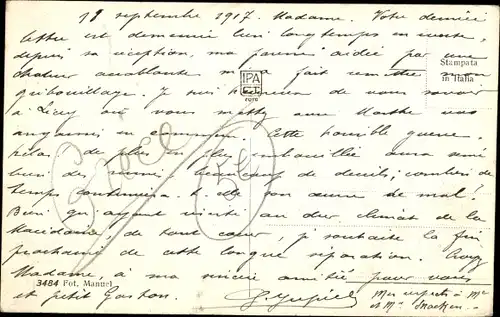 18 septembre 1917. Madame. Votre dernière
lettre est demeurée bien longtemps en route,
depuis sa réception, ma pensée aidée par une
chaleur accablante m'a fait remettre mon
gribouillage. Je suis heureux de vous savoir
à où vous mettez avec Marthe vos
en commun. Cette horrible guerre,
hélas de plus en plus embrouillée aura semé
bien des beaucoup de deuils; combien de
temps continuera-t-elle son œuvre de mal!
Bien qu'ayant résisté au dur climat de la
Macédoine, de tout cœur je souhaite la fin
prochaine de cette longue séparation. Croyez
Madame, à ma sincère amitié pour vous
et petit Gaston.
Mes respects à Mr
et Me
Grèce
50
IPA
CT
Stampata
in Italia
3484 Fot. Manuel